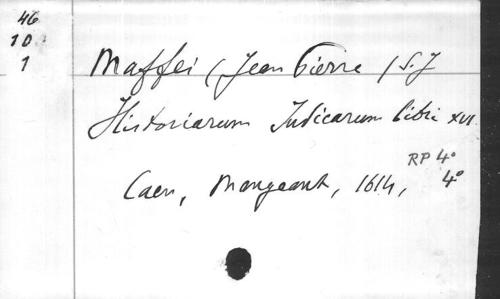 46
10
1
Maffei (Jean Pierre) S.J
Historiarum Indicarum libri XVI
Caen, Mangeant, 1614,
RP 4°
4°